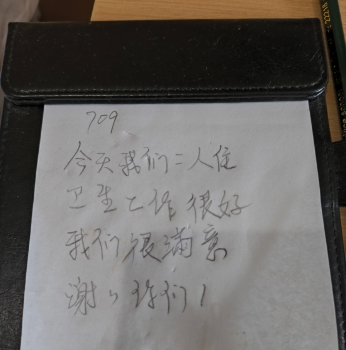 709
今天我们二人住
卫生工作很好
我们很满意
谢々你们！